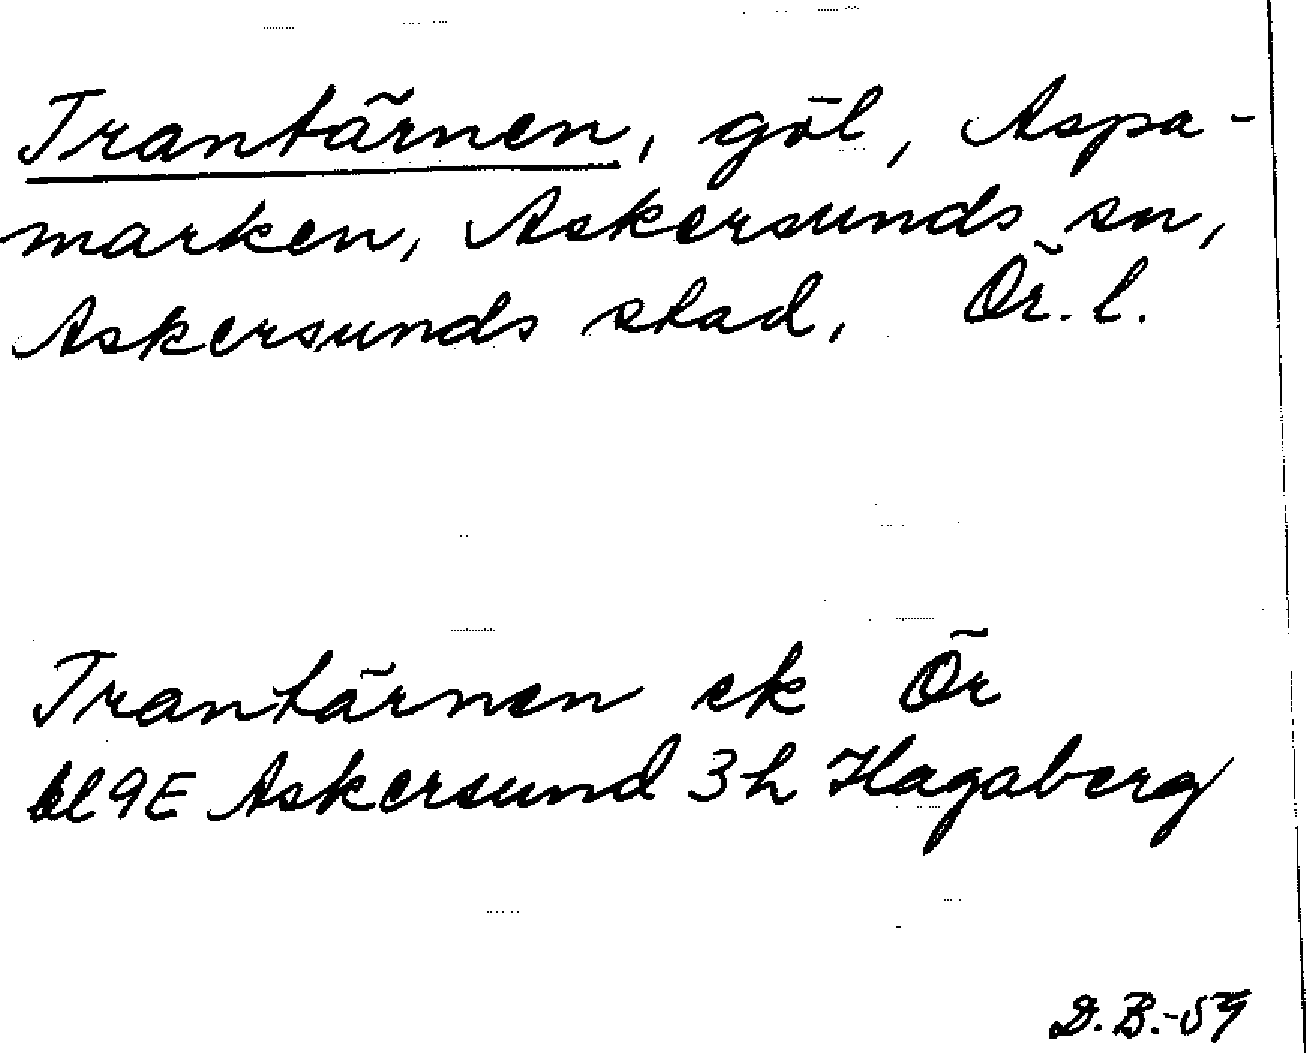 Trantärnen, göl, Aspa-
marken, Askersunds sn,
Askersunds stad, Ör. l.
Trantärnen ek Ör
bl 9E Askersund 3h Hagaberg
D.B.-59